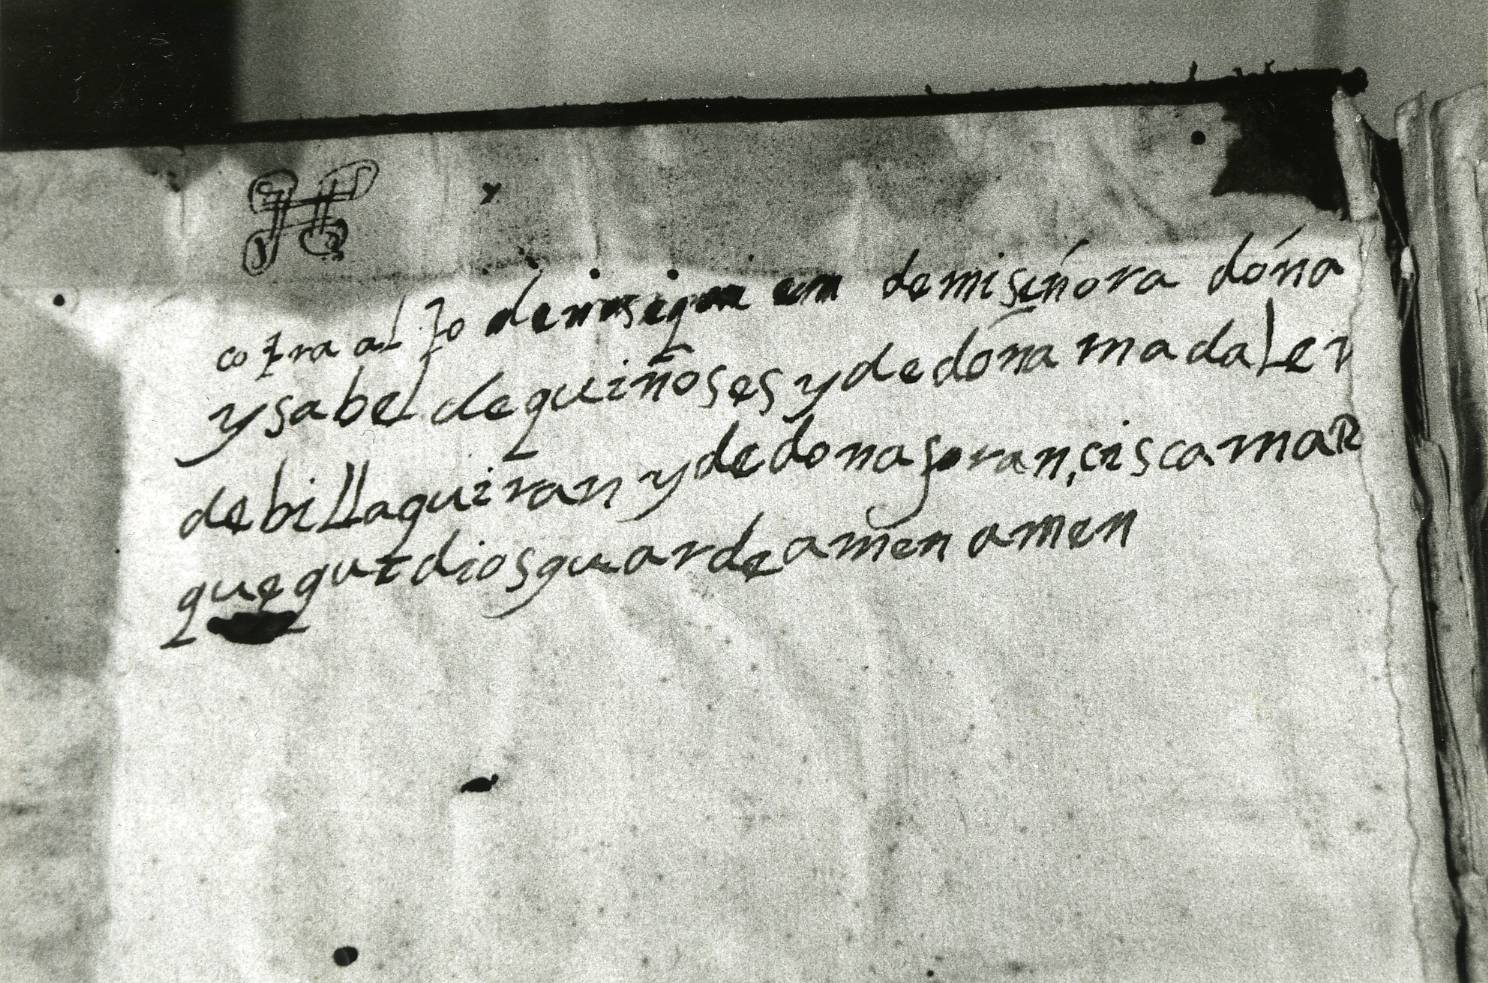 cotra alto de miseñora dóna
ysabel dequiñoses y dedóna madalen
debillaquiran y dedona fransisca maR
que guedios guarde amen amen